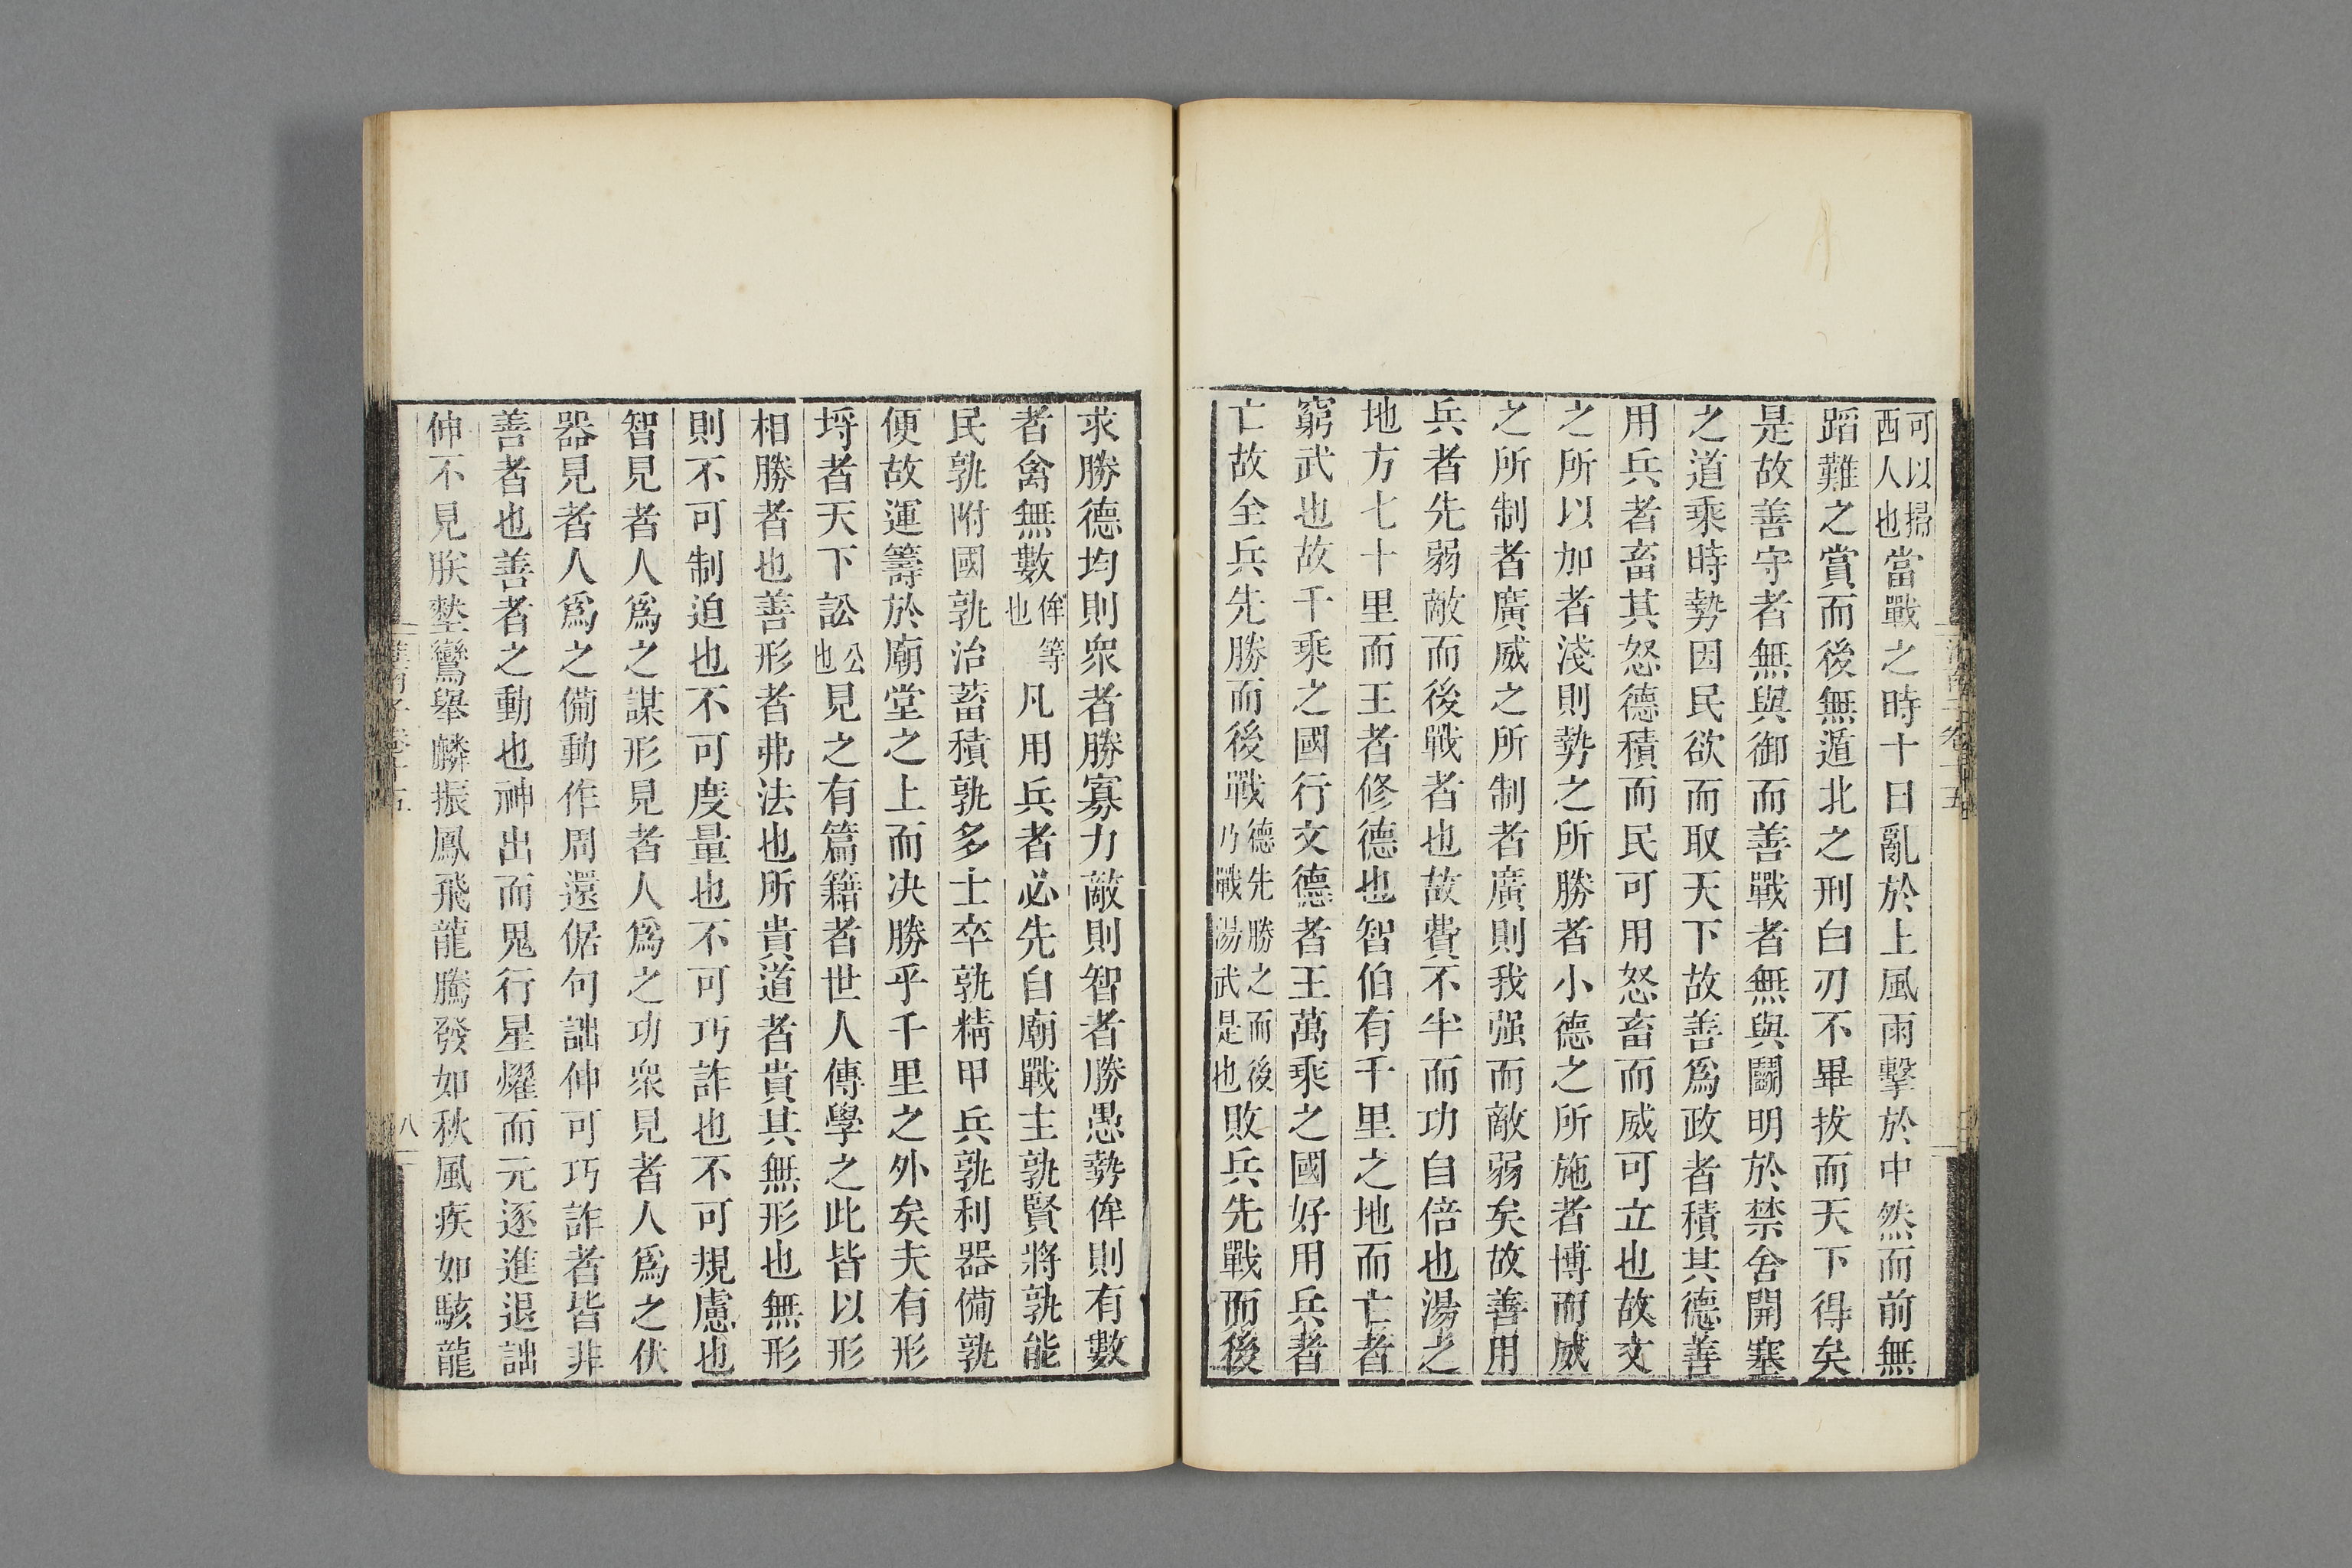 可以掃西人也當戰之時十日亂於上風雨擊於中然而前無
蹈難之賞而後無遁北之刑白刃不畢拔而天下得矣
是故善守者無與御而善戰者無與鬭明於禁舍開塞
之道乘時勢因民欲而取天下故善爲政者積其德善
用兵者畜其怒德積而民可用怒畜而威可立也故文
之所以加者淺則勢之所勝者小德之所施者博而威
之所制者廣威之所制者廣則我强而敵弱矣故善用
兵者先弱敵而後戰者也故費不半而功自倍也湯之
地方七十里而王者修德也智伯有千里之地而亡者
窮武也故千乘之國行文德者王萬乘之國好用兵者
亡故全兵先勝而後戰德先勝之而後乃戰湯武是也敗兵先戰而後
求勝德均則衆者勝寡力敵則智者勝愚勢侔則有數
者禽無數侔等也凡用兵者必先自廟戰主孰賢將孰能
民孰附國孰治蓄積孰多士卒孰精甲兵孰利器備孰
便故運籌於廟堂之上而决勝乎千里之外矣夫有形
埒者天下訟公也見之有篇籍者世人傳學之此皆以形
相勝者也善形者弗法也所貴道者貴其無形也無形
則不可制迫也不可度量也不可巧詐也不可規慮也
智見者人爲之謀形見者人爲之功衆見者人爲之伏
器見者人爲之備動作周還倨句詘伸可巧詐者皆非
善者也善者之動也神出而鬼行星燿而元逐進退詘
伸不見朕𡐛鸞舉麟振鳳飛龍騰發如秋風疾如駭龍
八